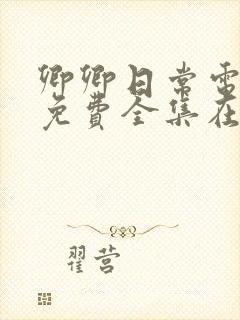 卿卿日常电
免费全集在
翟营